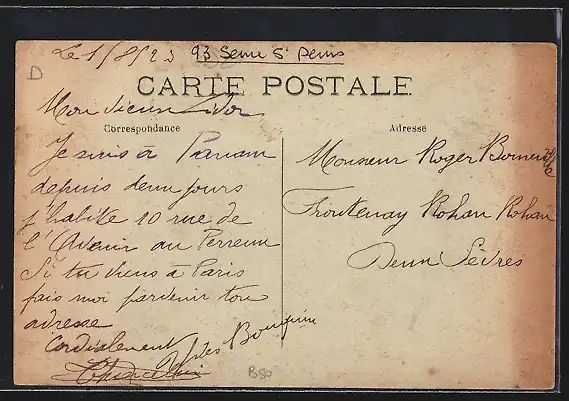 Le 1/8/23 93 Seine St Denis
D
CARTE POSTALE
Mon vieux
Correspondance
Adresse
Je suis à Panam
depuis deux jours
j'habite 10 rue de
l'Avenir au Perreux
Si tu viens à Paris
fais moi parvenir ton
adresse
Cordialement
Monsieur Roger
Frontenay Rohan Rohan
Deux Sèvres